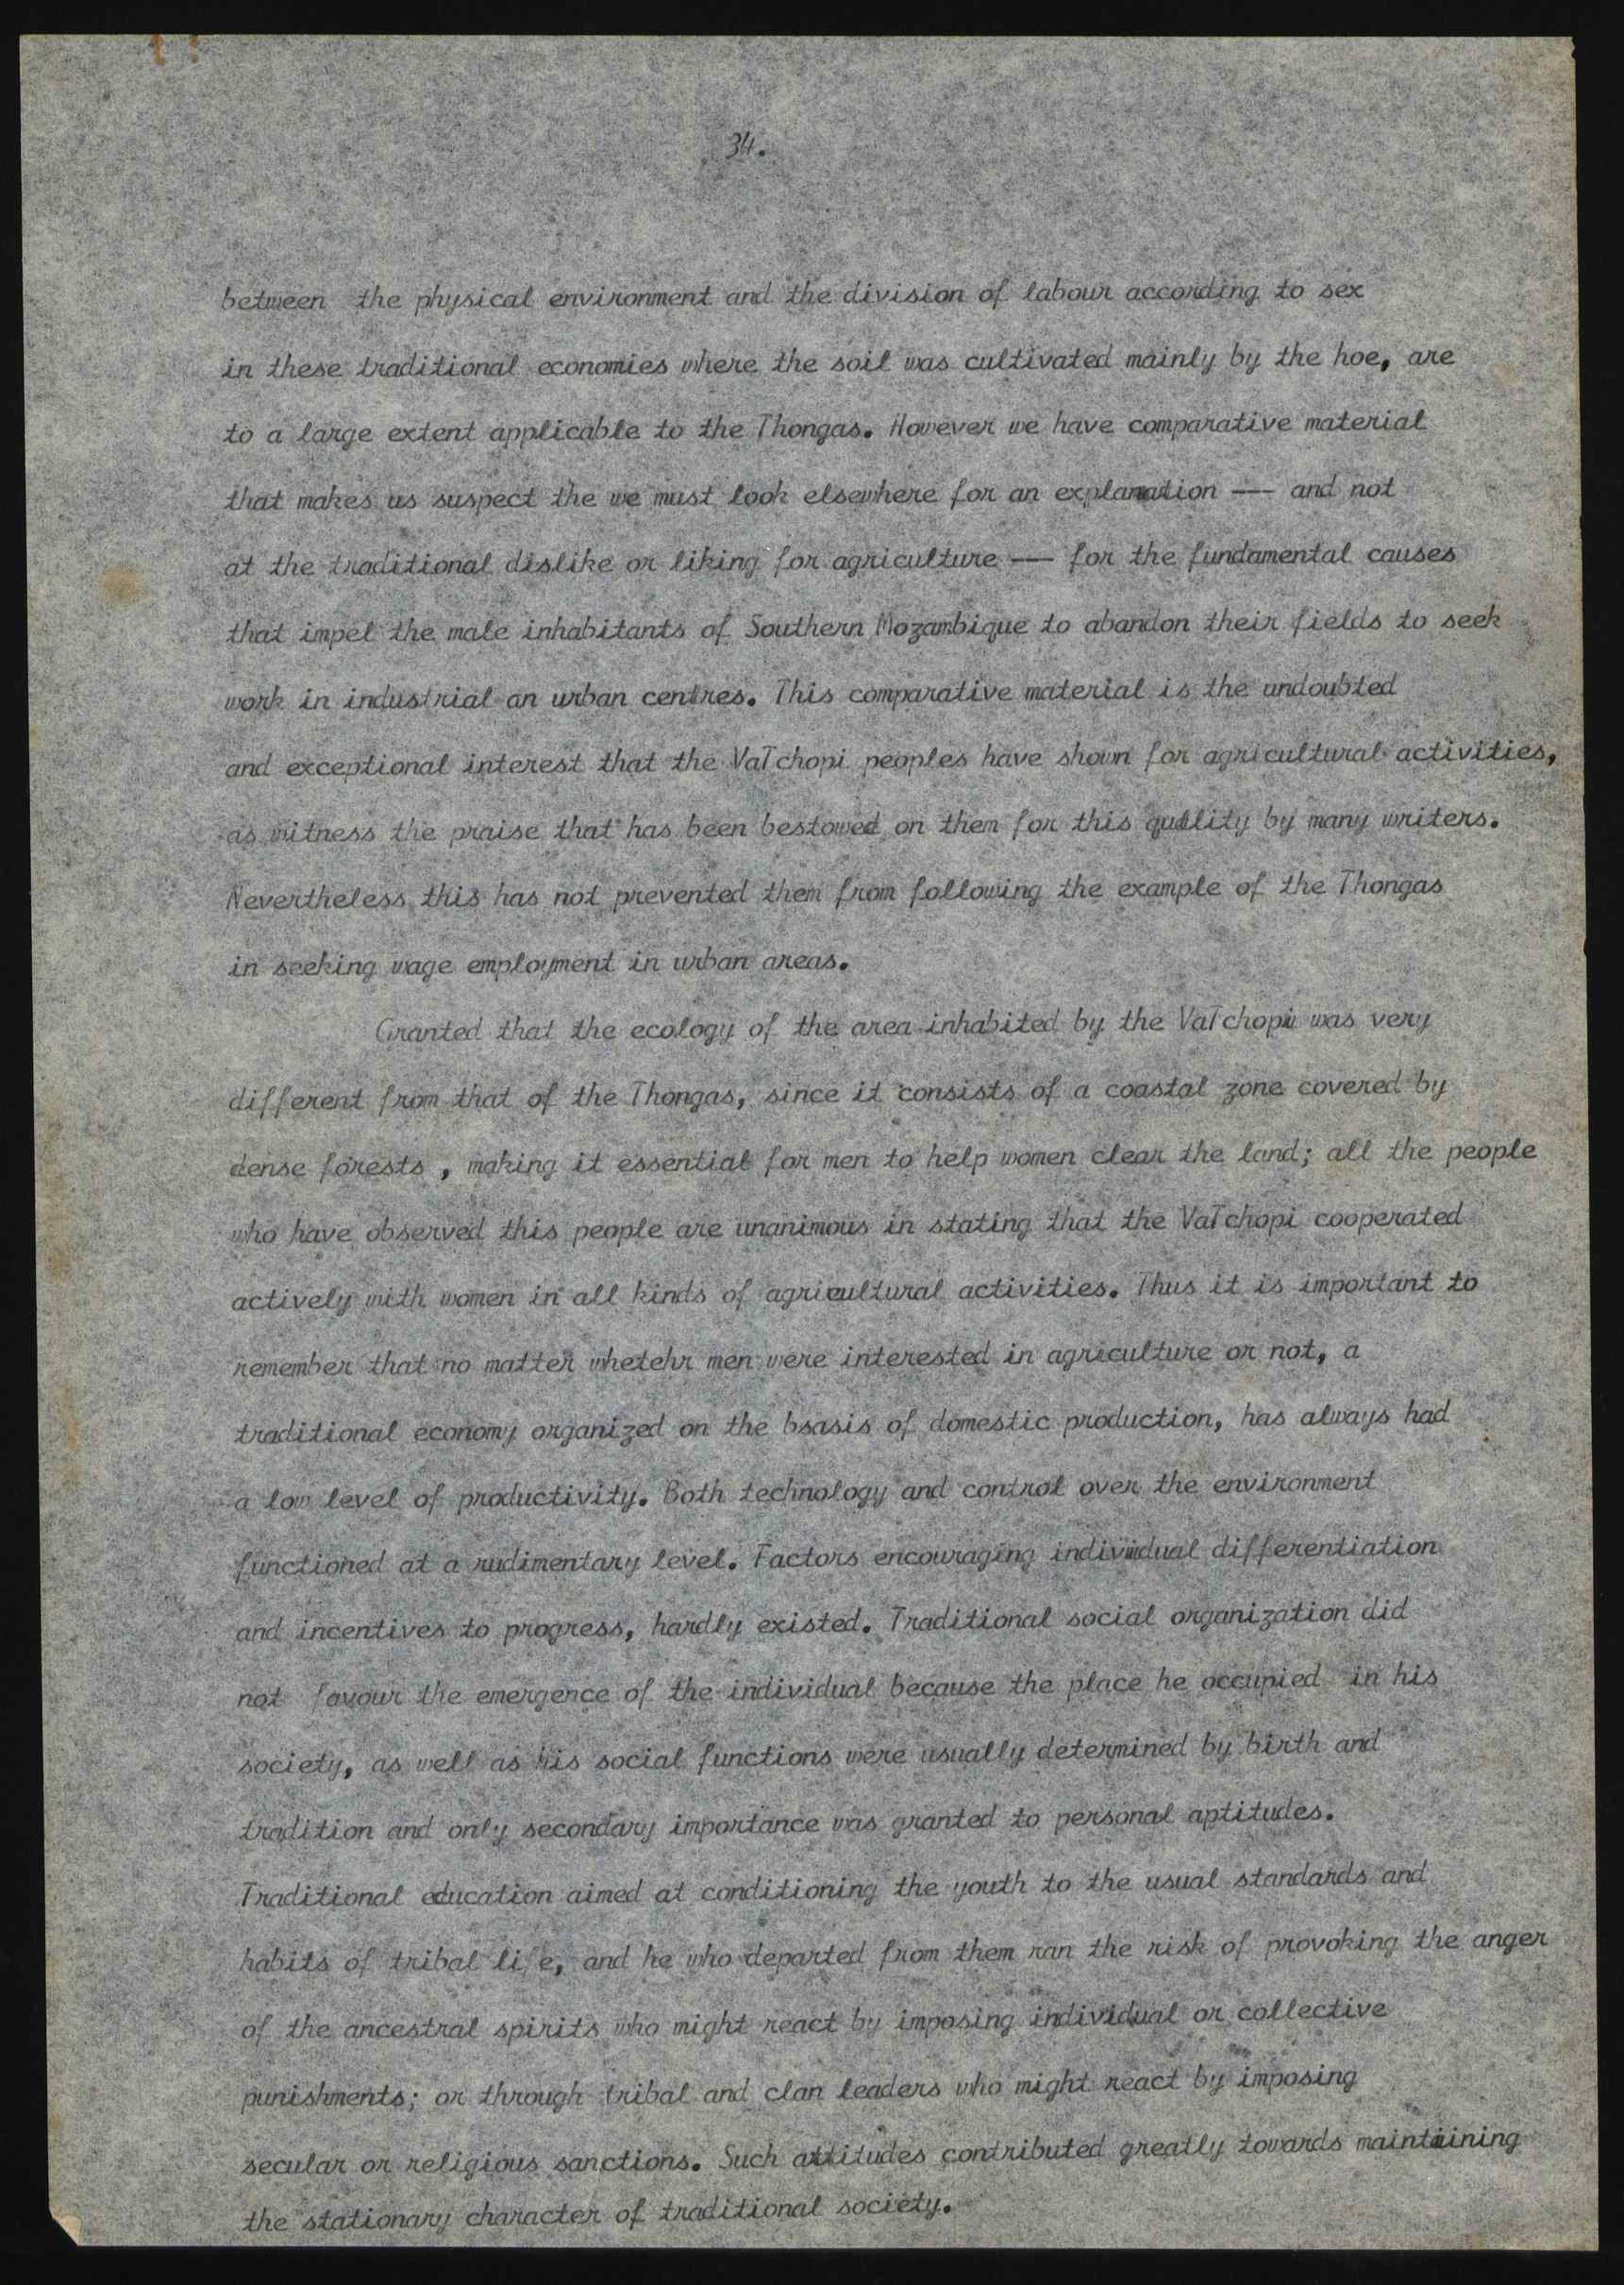 34.
between the physical environment and the division of labour according to sex
in these traditional economies where the soil was cultivated mainly by the hoe, are
to a large extent applicable to the Thongas. However we have comparative material
that makes us suspect the we must look elsewhere for an explanation —— and not
at the traditional dislike or liking for agriculture —— for the fundamental causes
that impel the male inhabitants of Southern Mozambique to abandon their fields to seek
work in industrial an urban centres. This comparative material is the undoubted
and exceptional interest that the VaTchopi peoples have shown for agricultural activities,
as witness the praise that has been bestowed on them for this quality by many writers.
Nevertheless this has not prevented them from following the example of the Thongas
in seeking wage employment in urban areas.
Granted that the ecology of the area inhabited by the VaTchopi was very
different from that of the Thongas, since it consists of a coastal zone covered by
dense forests , making it essential for men to help women clear the land; all the people
who have observed this people are unanimous in stating that the VaTchopi cooperated
actively with women in all kinds of agricultural activities. Thus it is important to
remember that no matter whetehr men were interested in agriculture or not, a
traditional economy organized on the bsasis of domestic production, has always had
a low level of productivity. Both technology and control over the environment
functioned at a rudimentary level. Factors encouraging individual differentiation
and incentives to progress, hardly existed. Traditional social organization did
not favour the emergence of the individual because the place he occupied in his
society, as well as his social functions were usually determined by birth and
tradition and only secondary importance was granted to personal aptitudes.
Traditional education aimed at conditioning the youth to the usual standards and
habits of tribal life, and he who departed from them ran the risk of provoking the anger
of the ancestral spirits who might react by imposing individual or collective
punishments; or through tribal and clan leaders who might react by imposing
secular or religious sanctions. Such attitudes contributed greatly towards maintaining
the stationary character of traditional society.